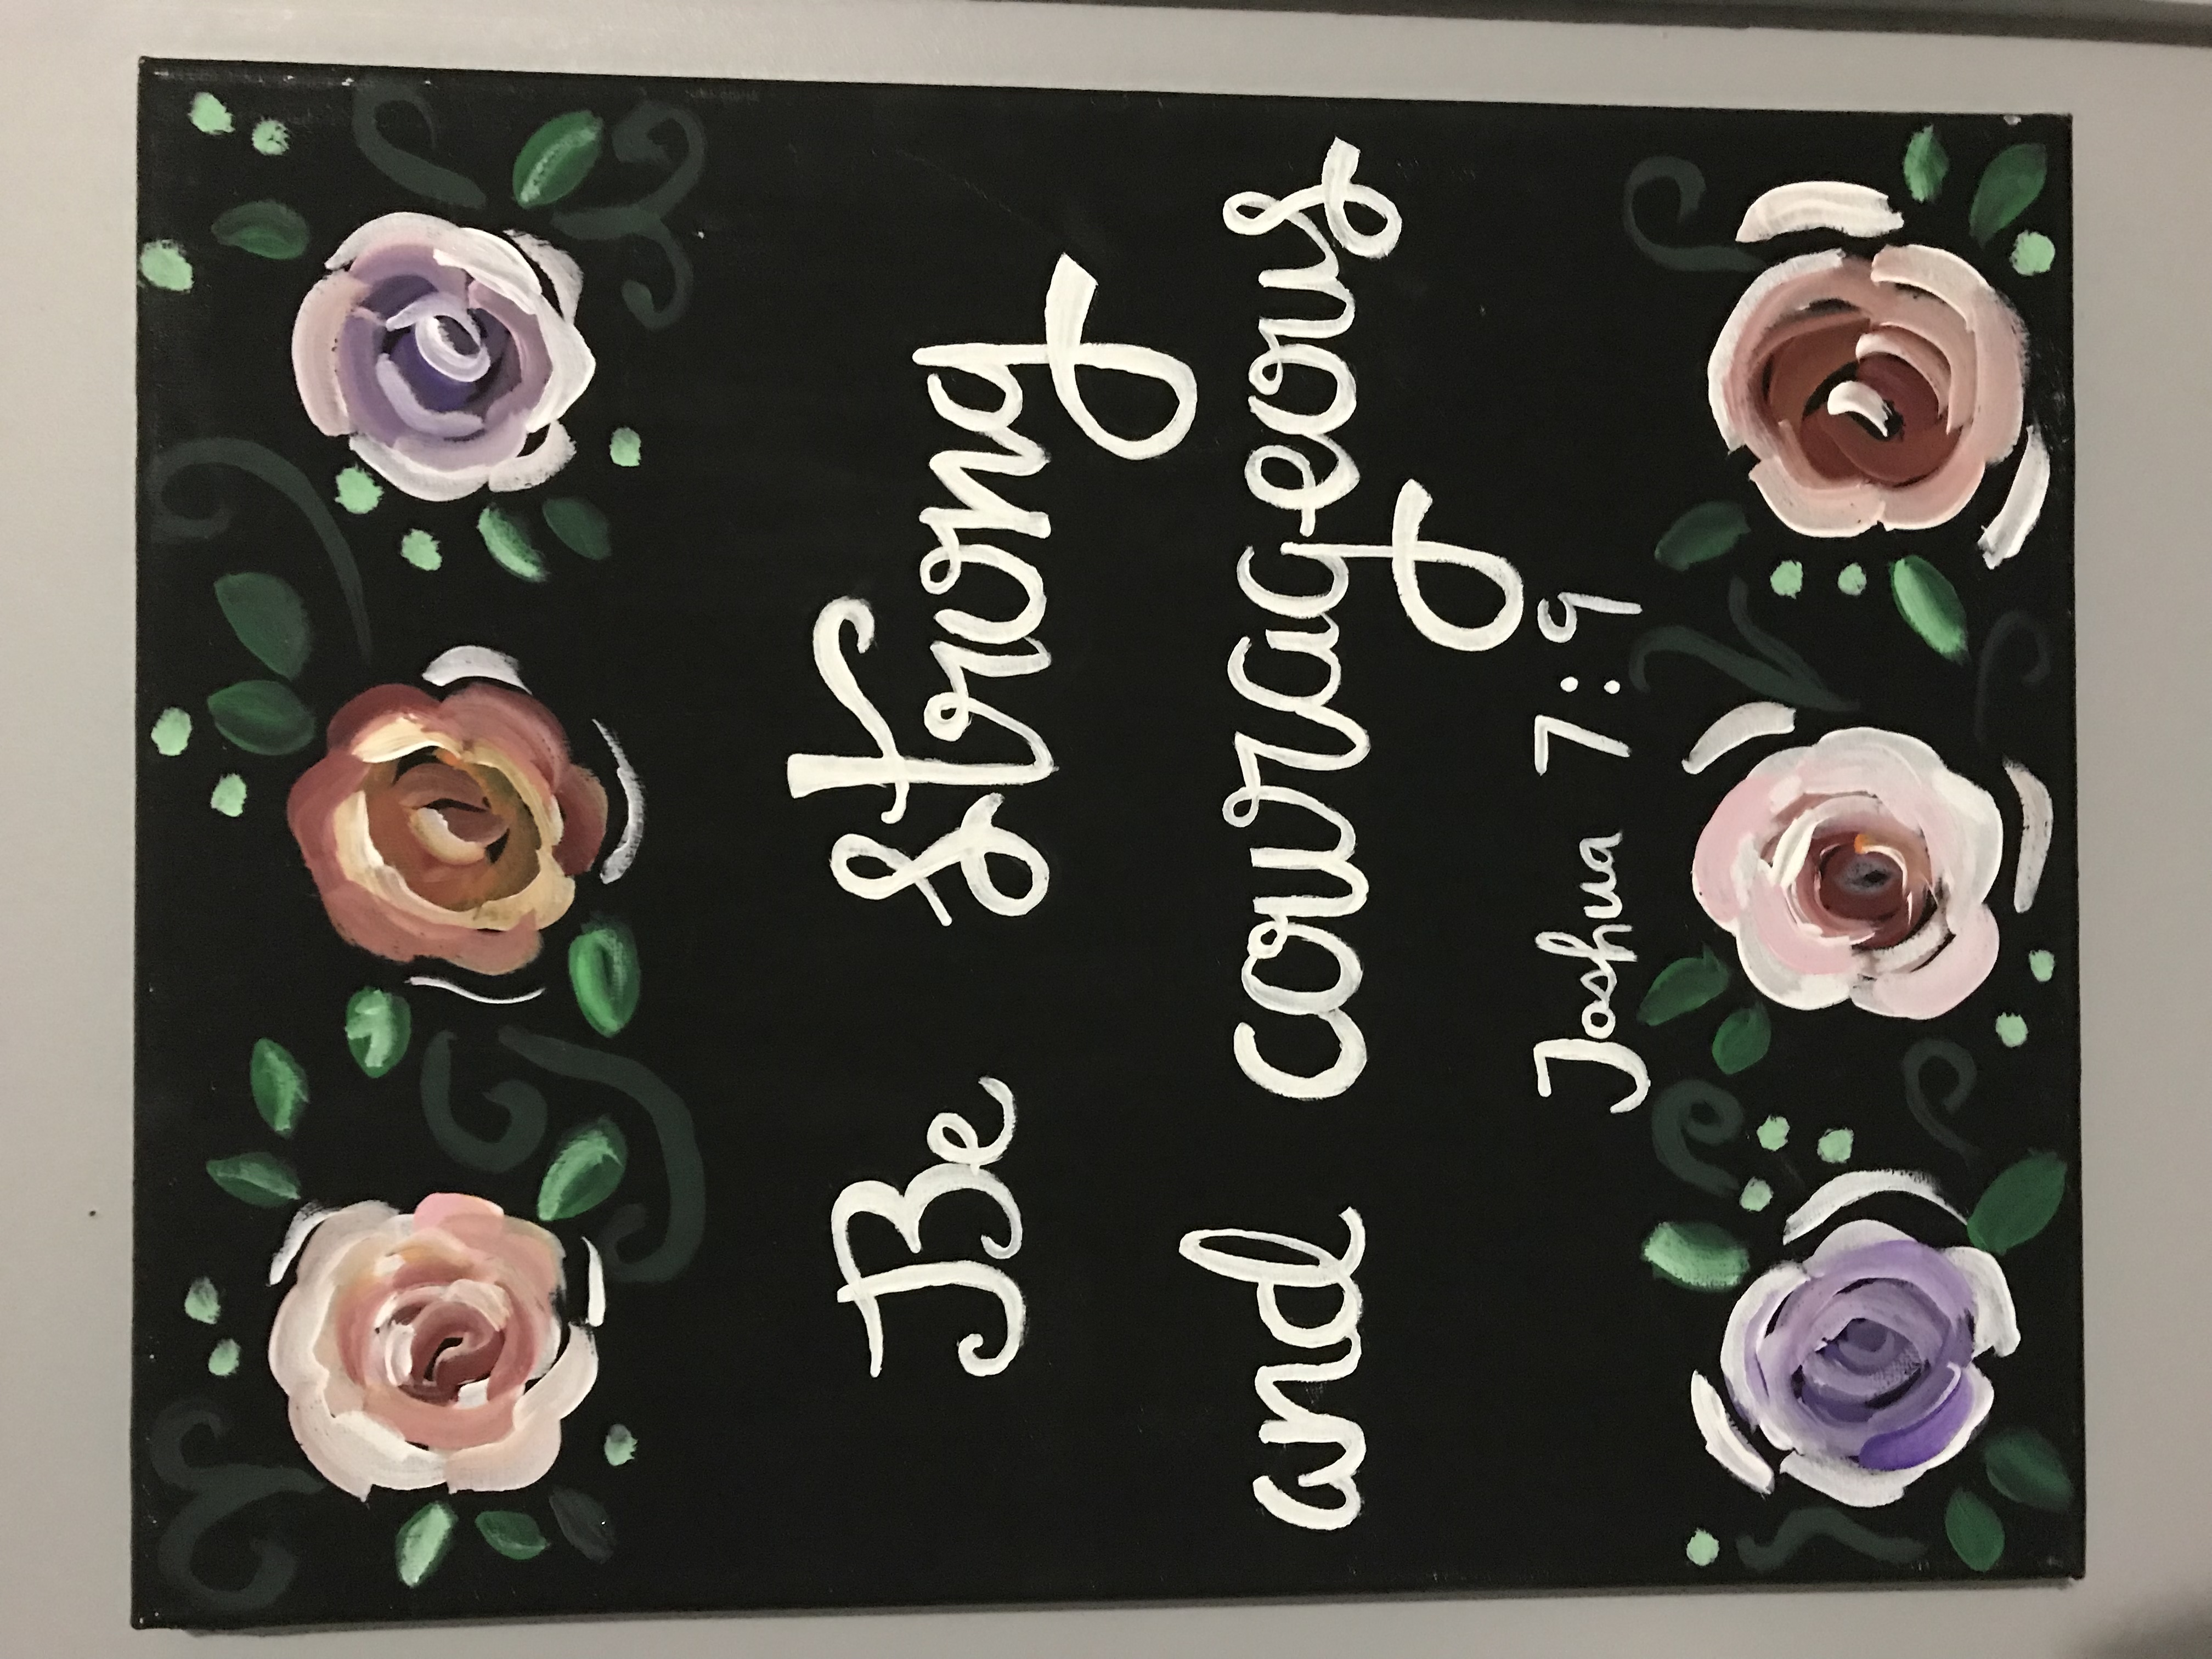 Be strong
and courageous
Joshua 7:9